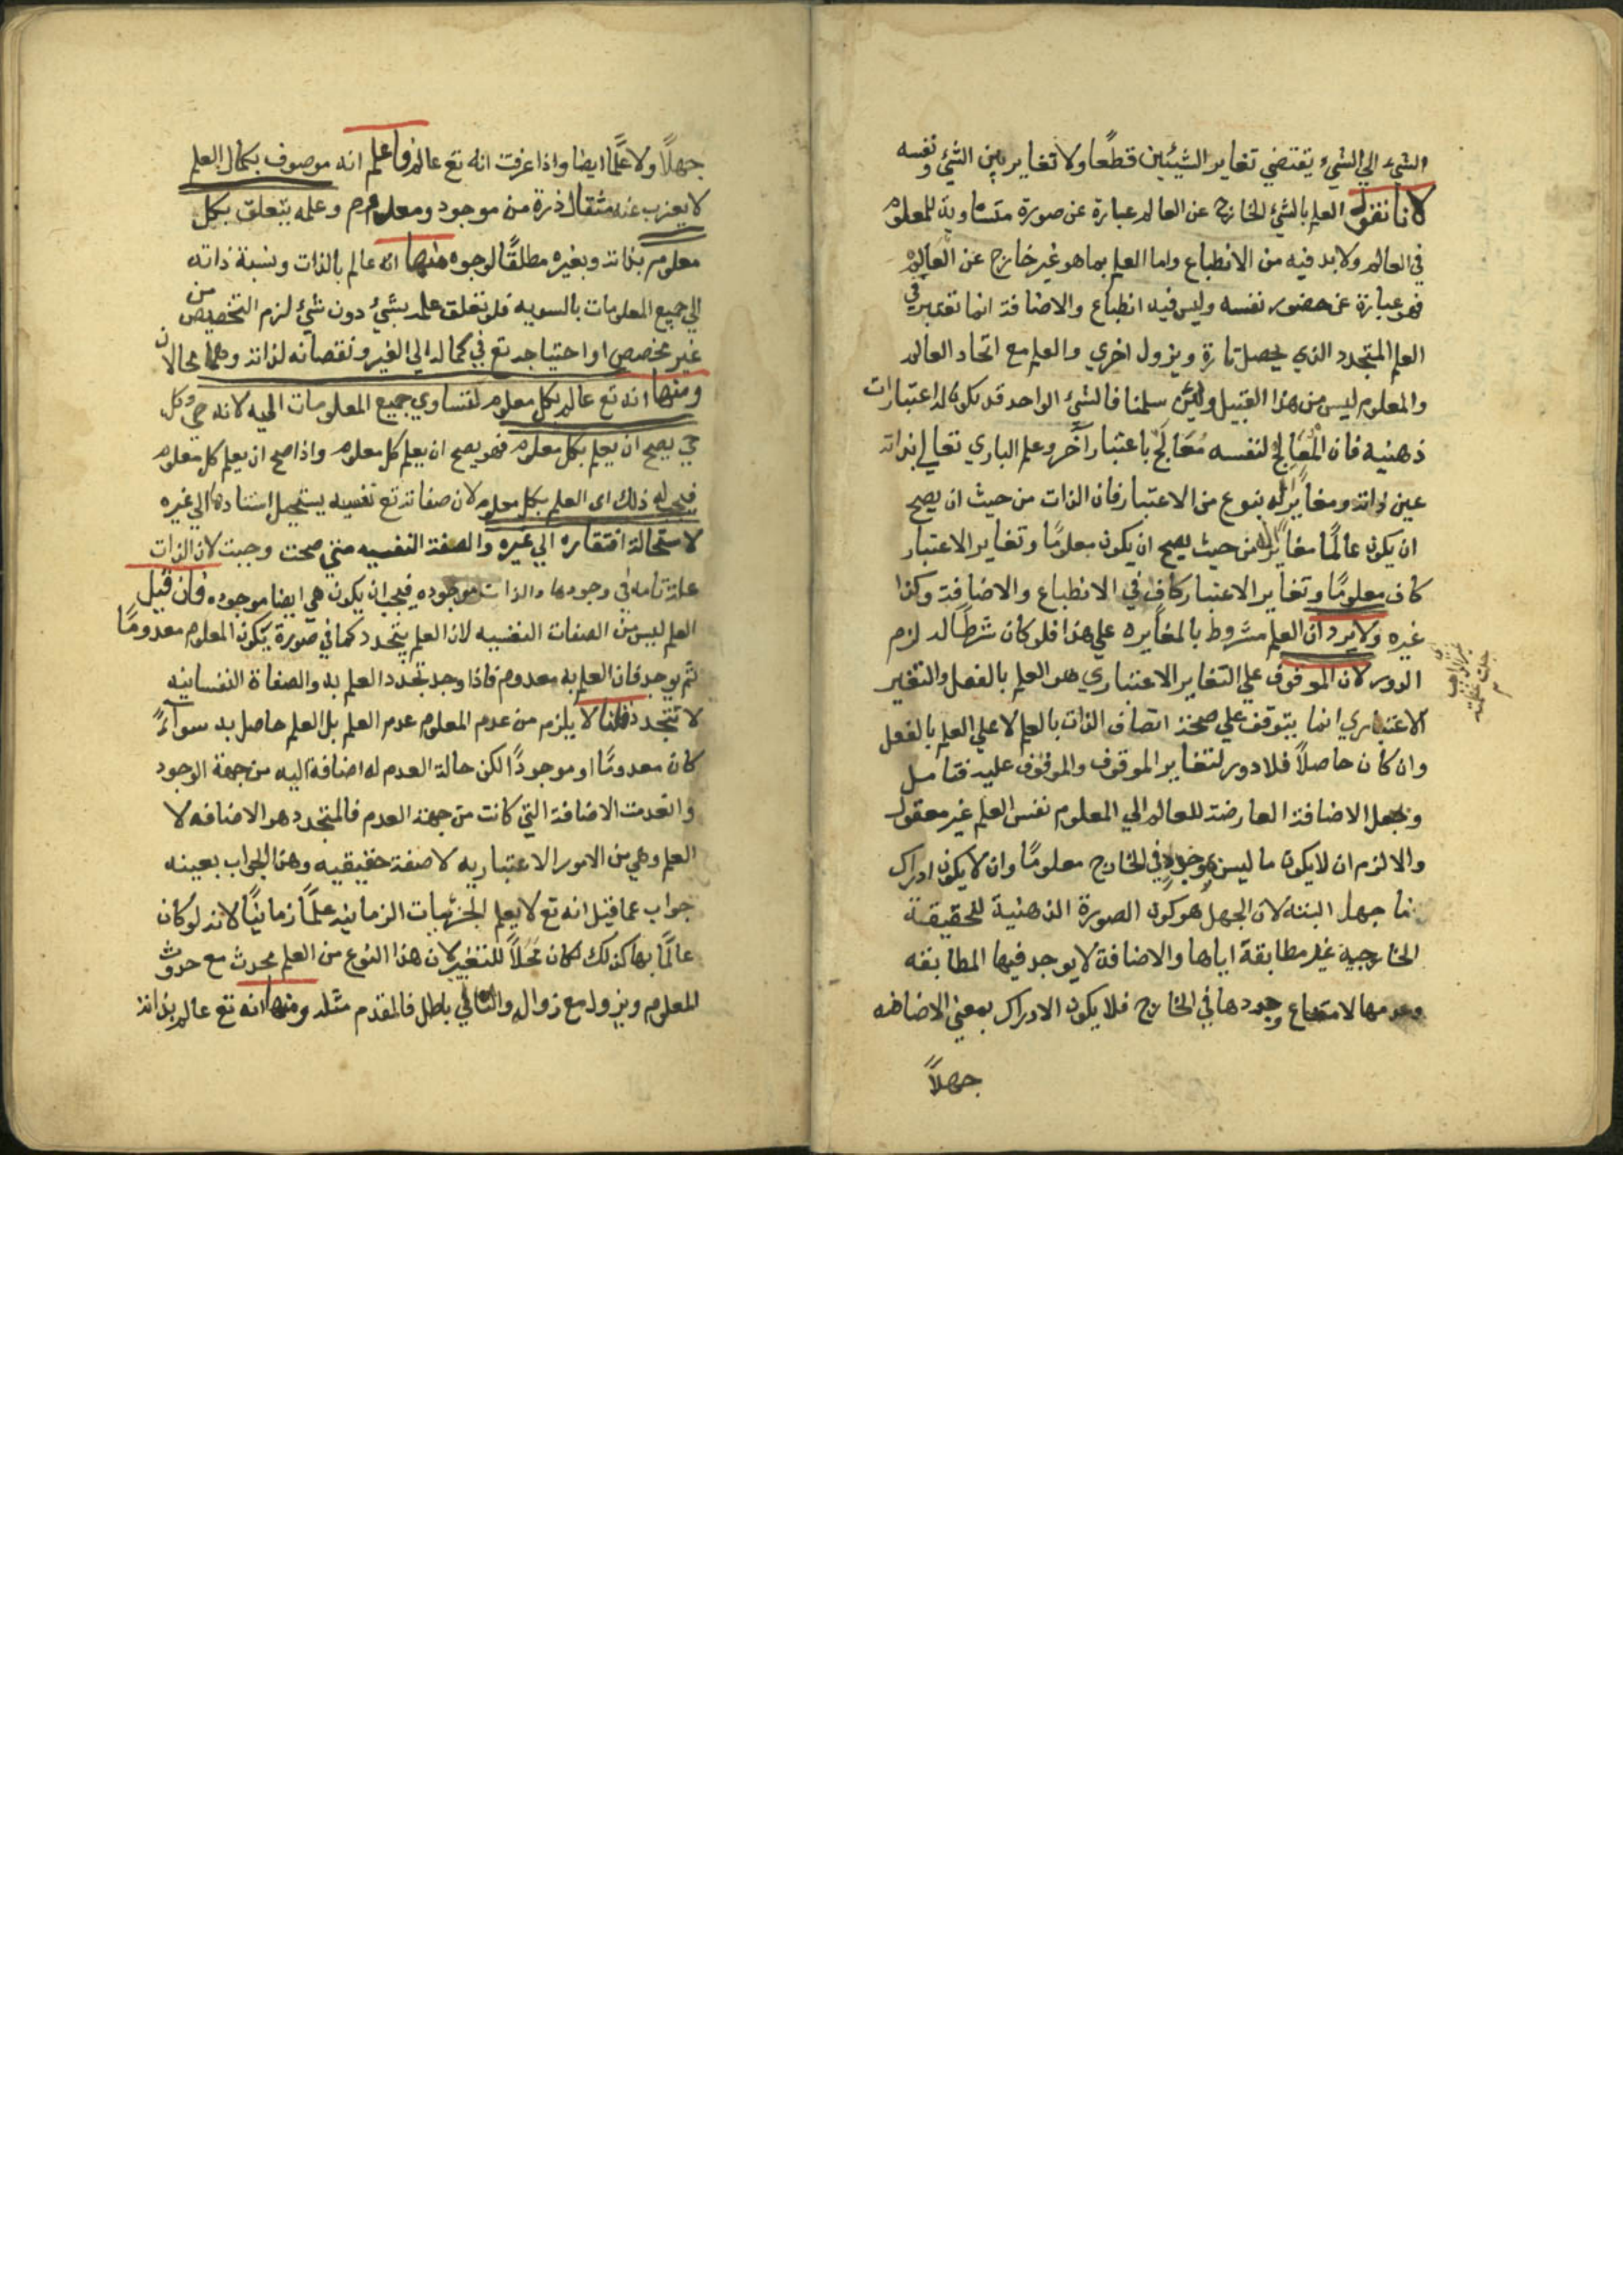 الشيء الي الشيء يقتضي تغاير الشيئين قطعا ولا تغاير بين الشيء ونفسه
لانا نقول العلم بالشئ الخارج عن العالم عبارة عن صورة متساوية للمعلوم
في العالم ولا بد فيه من الانطباع واما العلم بما هو غير خارج عن العالم
فهو عبارة عن حضور نفسه وليس فيه انطباع والاضافة انما تعتبر في
العلم المتجدد الذي يحصل تارة ويزول اخري والعلم مع اتحاد العالم
والمعلوم ليس من هذا القبيل ولئن سلمنا فالشئ الواحد قد يكون له اعتبارات
ذهنية فان المعالج لنفسه معالج باعتبار آخر وعلم الباري تعالي بذاته
عين ذاته ومغاير له بنوع من الاعتبار فان الذات من حيث ان يصح
ان يكون عالما مغاير له من حيث يصح ان يكون معلوما وتغاير الاعتبار
كاف معلوما وتغاير الاعتبار كاف في الانطباع والاضافة وكذا
غيره ولا يرد ان العلم مشروط بالمغايره علي هذا فلو كان شرطا له لزم
الدور لان الموقوف علي التغاير الاعتباري هو العلم بالفعل والتغير
الاعتباري انما يتوقف علي صحة اتصاف الذات بالعلم لا علي العلم بالفعل
وان كان حاصلا فلا دور لتغاير الموقوف والموقوف عليه فتامل
وجعل الاضافة العارضة للعالم الي المعلوم نفس العلم غير معقول
والا لزم ان لا يكون ما ليس بموجود في الخارج معلوما وان لا يكون ادراك
ما جهل البتة لان الجهل هو كون الصورة الذهنية للحقيقة
الخارجية غير مطابقة اياها والاضافة لا يوجد فيها المطابقه
وعدمها لامتناع وجودها في الخارج فلا يكون الادراك بمعني الاضافه
جهلاً
جهلاً ولا علماً ايضا واذا عرفت انه تع عالم فاعلم انه موصوف بكمال العلم
لا يعزب عنه مثقال ذرة من موجود ومعدوم وعلمه يتعلق بكل
معلوم بذاته وبغيره مطلقاً لوجوه منها انه عالم بالذات ونسبة ذاته
الي جميع المعلومات بالسويه فلو تعلق علمه بشئ دون شئ لزم التخصيص من
غير مخصص او احتياجه تع في كماله الي الغير ونقصانه لذاته وهما محالان
ومنها انه تع عالم بكل معلوم لتساوي جميع المعلومات اليه لانه حي وكل
حي يصح ان يعلم بكل معلوم فهو يصح ان يعلم كل معلوم واذا صح ان يعلم كل معلوم
فيجب له ذلك اى العلم بكل معلوم لان صفاته تع نفسيه يستحيل استنادها الي غيره
لاستحالة افتقاره الي غيره والصفة النفسيه متي صحت وجبت لان الذات
علة تامه في وجودها والذات موجوده فيجب ان يكون هي ايضا موجوده فان قيل
العلم ليس من الصفات النفسيه لان العلم يتجدد كما في صورة يكون المعلوم معدوماً
ثم يوجد فان العلم به معدوم فاذا وجد تجدد العلم به والصفاة النفسانيه
لا تتجدد قلنا لا يلزم من عدم المعلوم عدم العلم بل العلم حاصل به سواءً
كان معدوماً او موجوداً لكن حالة العدم له اضافة اليه من جهة الوجود
وانعدمت الاضافة التي كانت من جهة العدم فالمتجدد هو الاضافه لا
العلم وهي من الامور الاعتباريه لا صفة حقيقيه وهذا الجواب بعينه
جواب عما قيل انه تع لا يعلم الجزئيات الزمانية علماً زمانياً لانه لو كان
عالماً بها كذلك لكان محلاً للتغير لان هذا النوع من العلم محدث مع حدوث
المعلوم ويزول مع زواله والتالي باطل فالمقدم مثله ومنها انه تع عالم بذاته